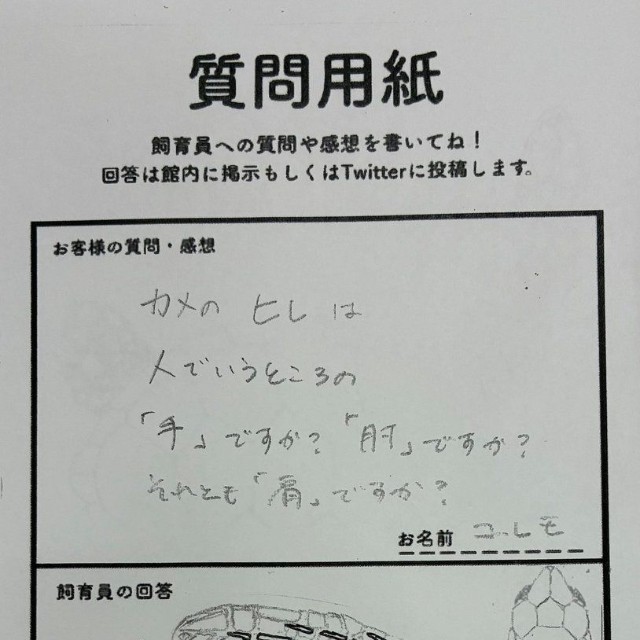 質問用紙
飼育員への質問や感想を書いてね！
回答は館内に掲示もしくはTwitterに投稿します。
お客様の質問・感想
カメの ヒレ は
人でいうところの
「手」ですか？「肘」ですか？
それとも「肩」ですか？
お名前 コレモ
飼育員の回答